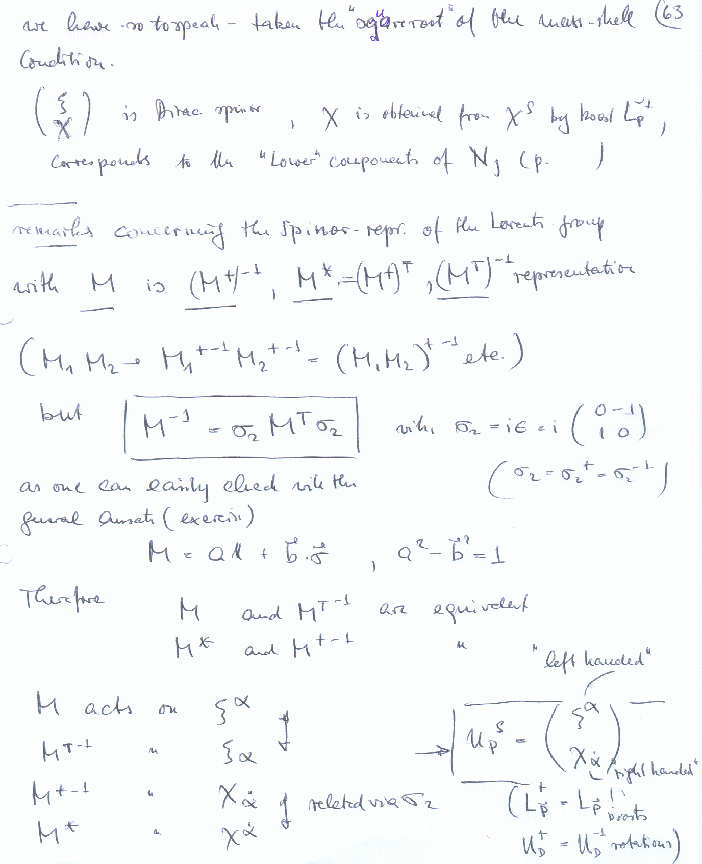 we have - so to speak - taken the "squareroot" of the mass-shell (63
Condition.
( ξ χ ) is Dirac spinor , χ is obtained from χ^s by boost L_p^-1 ,
corresponds to the "Lower" components of N_1 (p. )
remarks concerning the spinor-repr. of the Lorentz group
with M is (M^+)^-1 , M^* = (M^+)^T , (M^T)^-1 representation
( M_1 M_2 → M_1^{+ -1} M_2^{+ -1} = (M_1 M_2)^{+ -1} etc. )
but M^-1 = σ_2 M^T σ_2 with σ_2 = iε = i ( 0 -1 1 0 )
as one can easily check with the ( σ_2 = σ_2^+ = σ_2^-1 )
general Ansatz (exercise)
M = a 1 + b⃗ . σ⃗ , a^2 - b⃗^2 = 1
Therefore M and M^{T-1} are equivalent
M^* and M^{+-1} "
"left handed"
M acts on ξ^α
→ u_p^s = ( ξ^α χ_α̇ )
M^{T-1} " ξ_α
"right handed"
M^{+-1} " χ_α̇ related via σ_2 ( L_p⃗^+ = L_p⃗ ! boosts
M^* " χ^α̇ U_D^+ = U_D^-1 rotations)